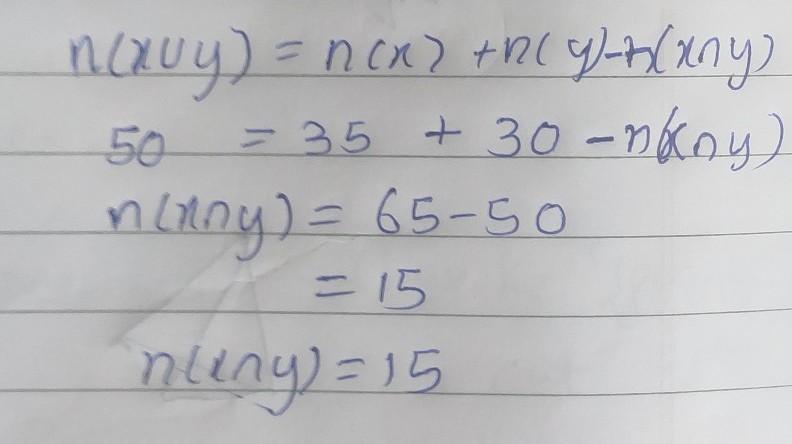 n(x∪y) = n(x) + n(y) - n(x∩y)
50 = 35 + 30 - n(x∩y)
n(x∩y) = 65 - 50
= 15
n(x∩y) = 15